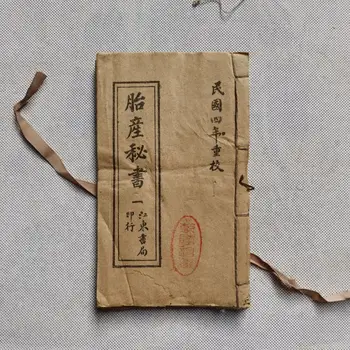 民國四年重校
胎產秘書
一
江東書局
印行